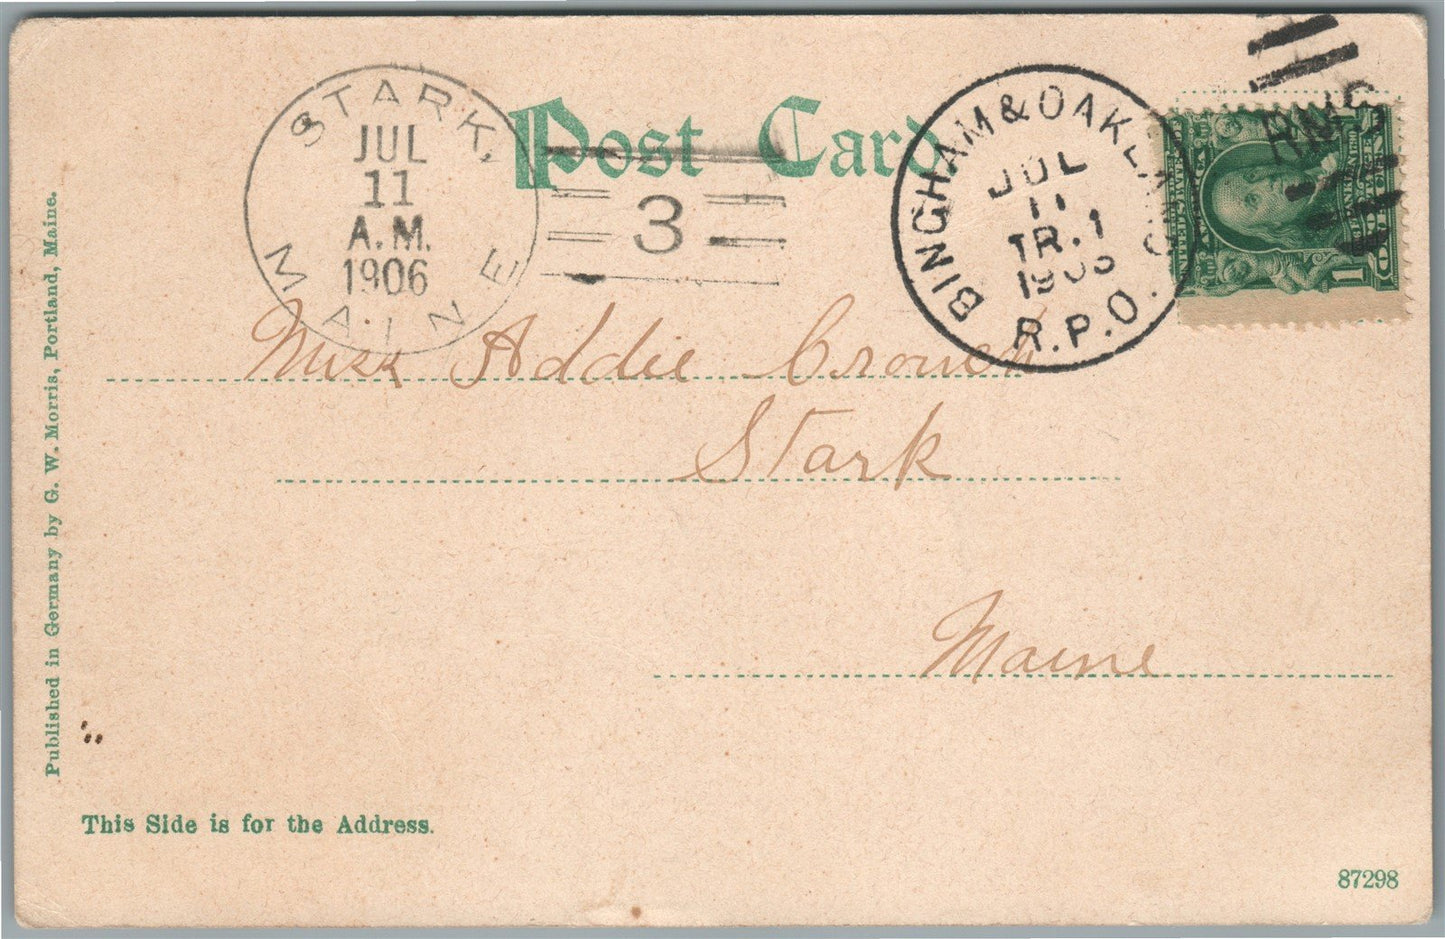 Post Card
STARK,
MAINE
JUL
11
A.M.
1906
3
BINGHAM & OAKLAND
JUL
11
TR.1
1906
R.P.O.
RMS
1
Miss Addie Crouch
Stark
Maine
Published in Germany by G. W. Morris, Portland, Maine.
This Side is for the Address.
87298